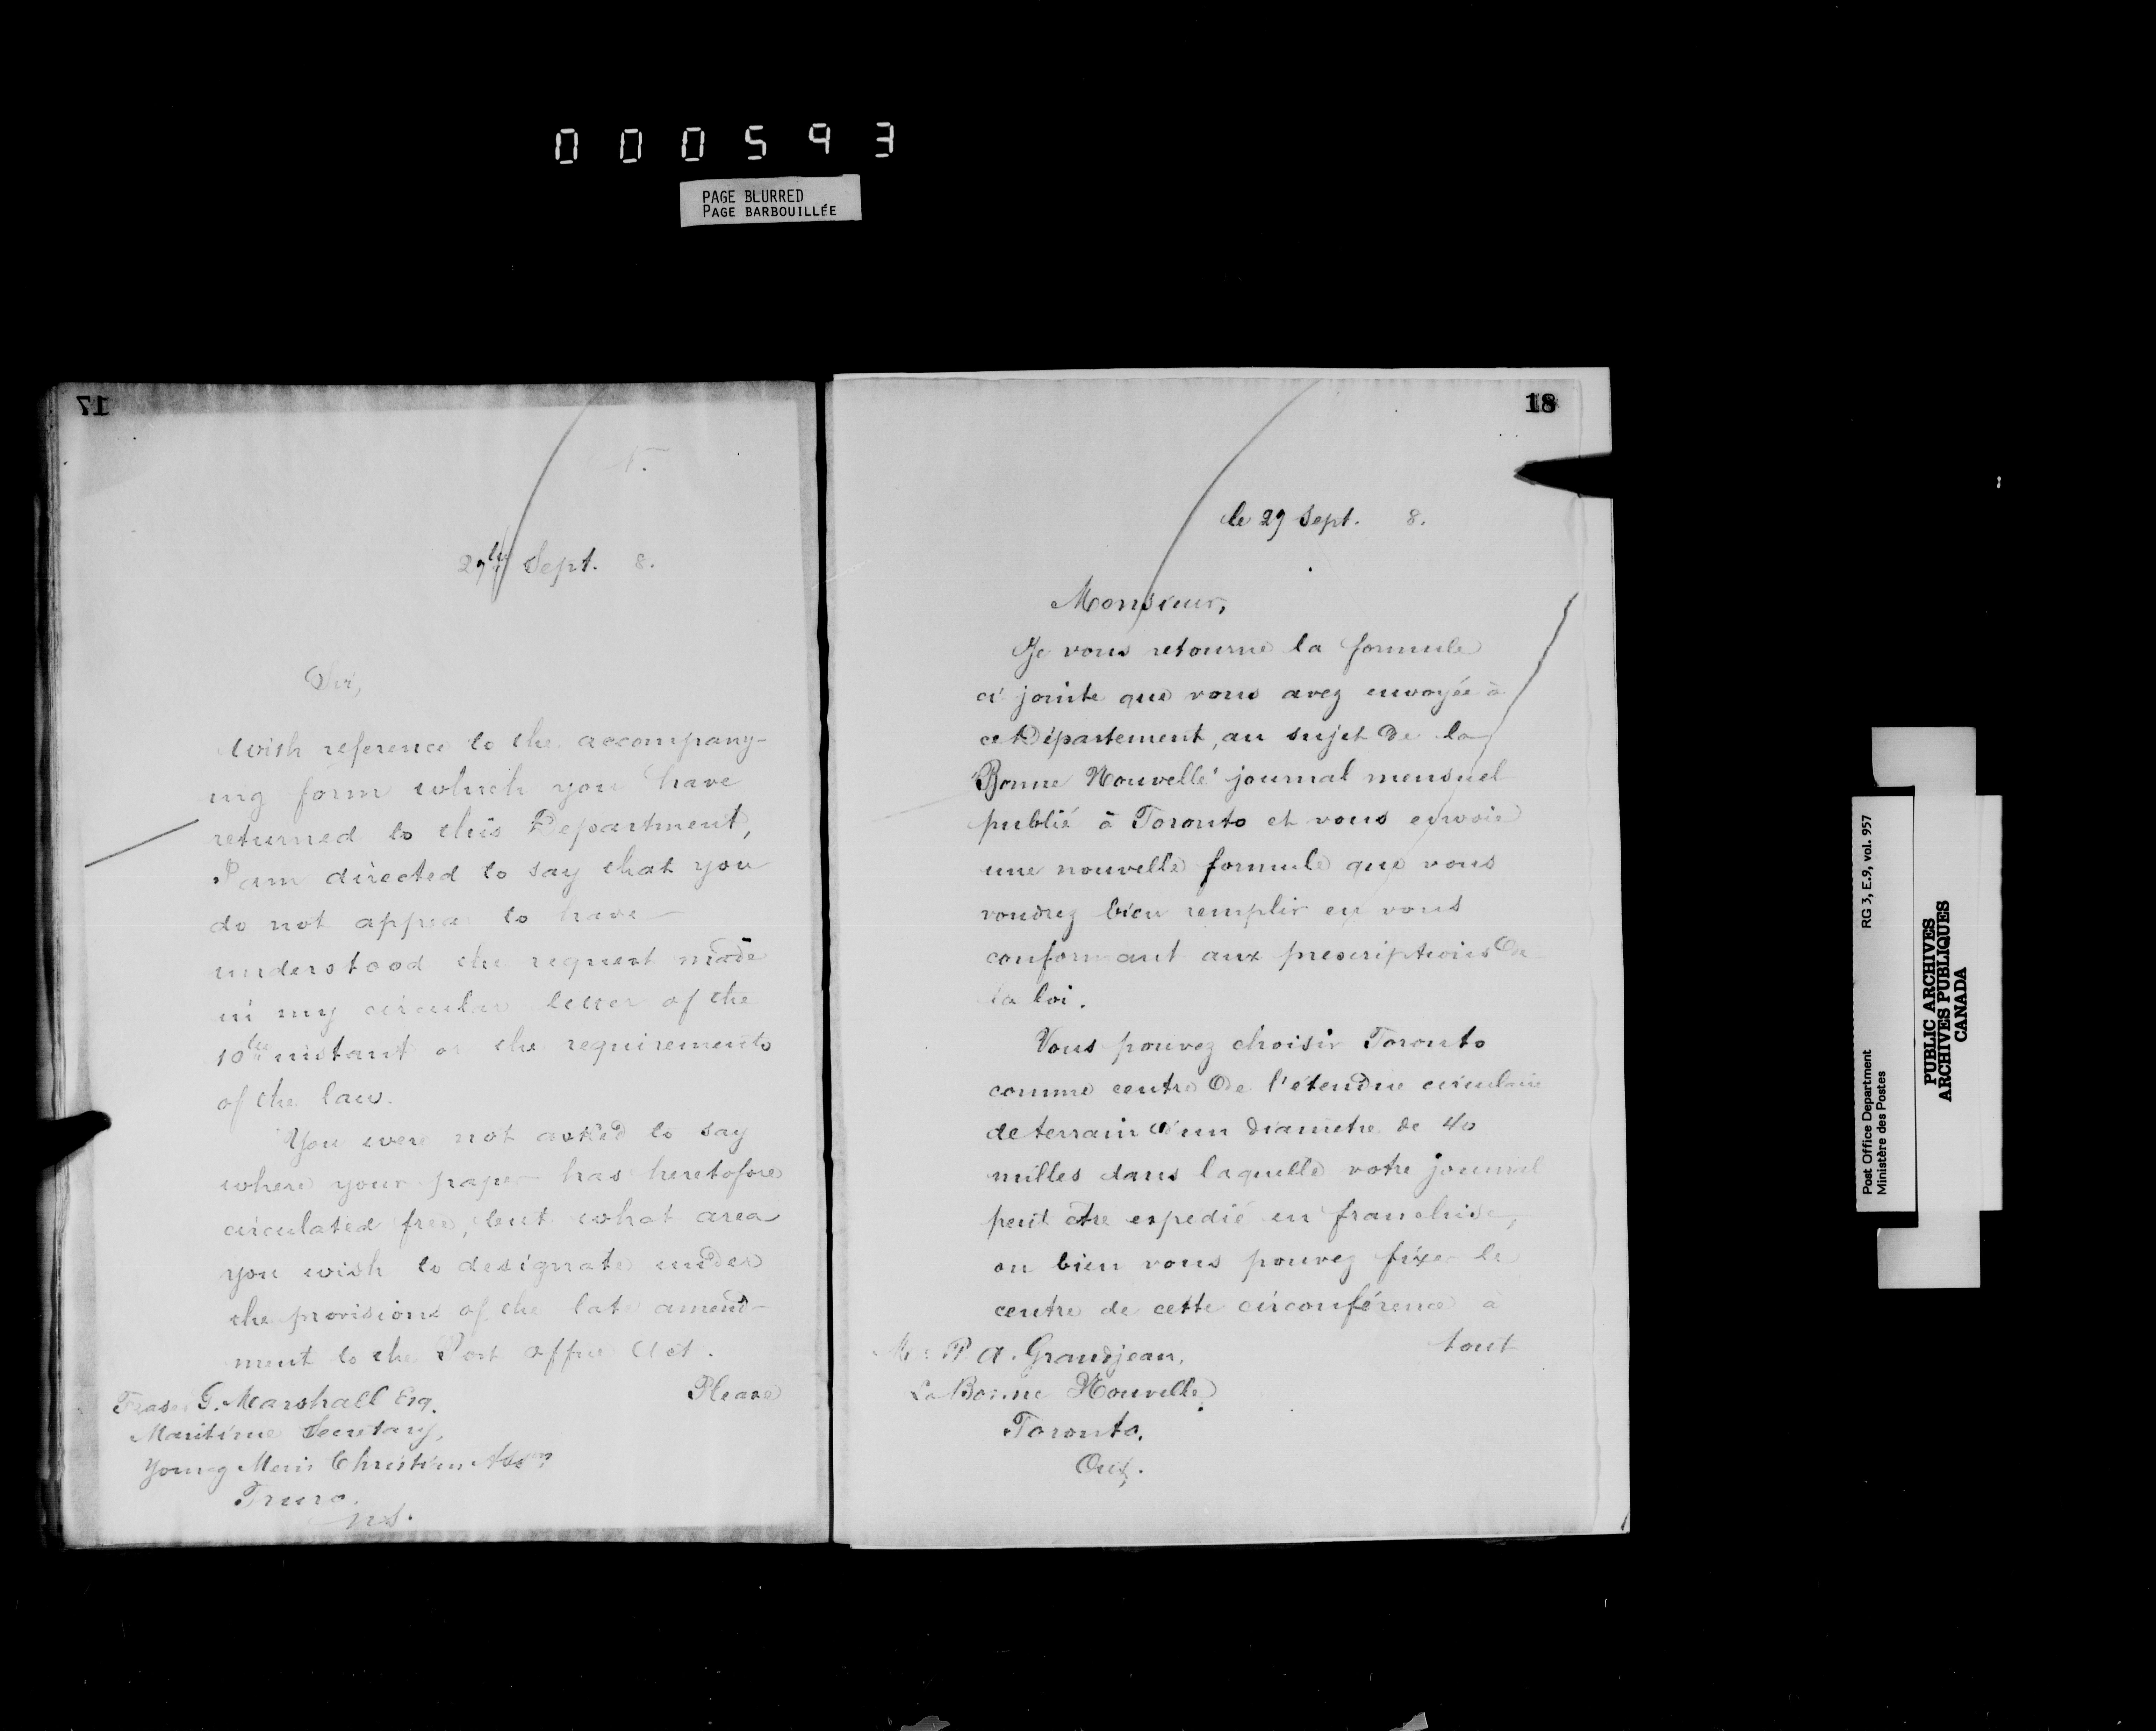 000593
PAGE BLURRED
PAGE BARBOUILLÉE
17
29th Sept. 8.
Sir,
With reference to the accompany-
ing form which you have
returned to this Department,
I am directed to say that you
do not appear to have
understood the request made
in my circular letter of the
10th instant or the requirements
of the law.
You were not asked to say
where your paper has heretofore
circulated free, but what area
you wish to designate under
the provisions of the late amend-
ment to the Post Office Act.
Please
Fraser G. Marshall Esq.
Maritime Secretary,
Young Men's Christian Assn
Truro.
N.S.
18
le 29 Sept. 8.
Monsieur,
Je vous retourne la formule
ci jointe que vous avez envoyée à
ce Département, au sujet de la
"Bonne Nouvelle" journal mensuel
publié à Toronto et vous envoie
une nouvelle formule que vous
voudrez bien remplir en vous
conformant aux prescriptions de
la loi.
Vous pouvez choisir Toronto
comme centre de l'étendue circulaire
de terrain d'un diamètre de 40
milles dans laquelle votre journal
peut être expedié en franchise,
ou bien vous pouvez fixer le
centre de cette circonférence à
tout
P. A. Grandjean,
La Bonne Nouvelle,
Toronto.
Ont.
Post Office Department
Ministère des Postes
RG 3, E.9, vol. 957
PUBLIC ARCHIVES
ARCHIVES PUBLIQUES
CANADA